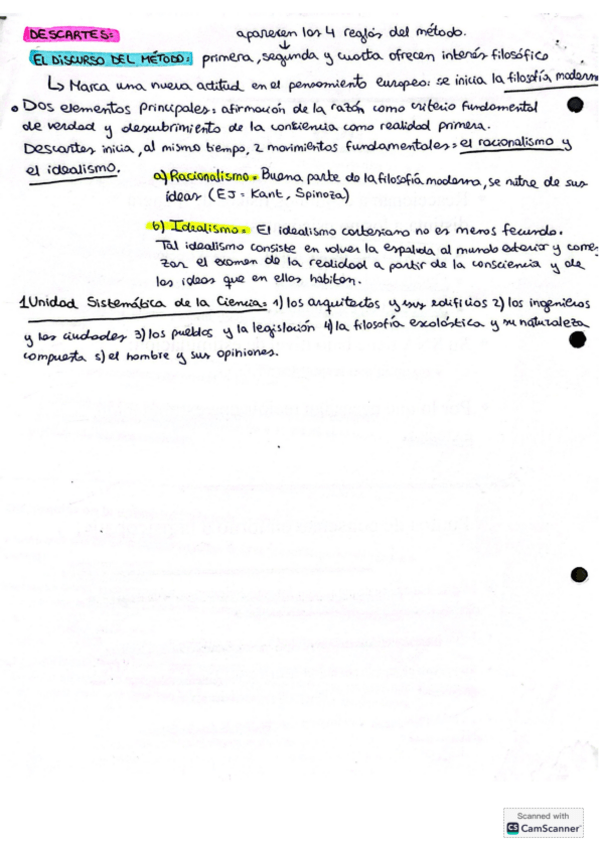 DESCARTES:
aparecen las 4 reglas del método.
EL DISCURSO DEL MÉTODO: primera, segunda y cuarta ofrecen interés filosófico
↳ Marca una nueva actitud en el pensamiento europeo: se inicia la filosofía moderna
• Dos elementos principales: afirmación de la razón como criterio fundamental
de verdad y descubrimiento de la conciencia como realidad primera.
Descartes inicia, al mismo tiempo, 2 movimientos fundamentales: el racionalismo y
el idealismo.
a) Racionalismo: Buena parte de la filosofía moderna, se nutre de sus
ideas (EJ: Kant, Spinoza)
b) Idealismo: El idealismo cartesiano no es menos fecundo.
Tal idealismo consiste en volver la espalda al mundo exterior y comen
zar el examen de la realidad a partir de la consciencia y de
las ideas que en ellas habitan.
1. Unidad Sistemática de la Ciencia: 1) los arquitectos y sus edificios 2) los ingenieros
y las ciudades 3) los pueblos y la legislación 4) la filosofía escolástica y su naturaleza
compuesta 5) el hombre y sus opiniones.
Scanned with
CS CamScanner